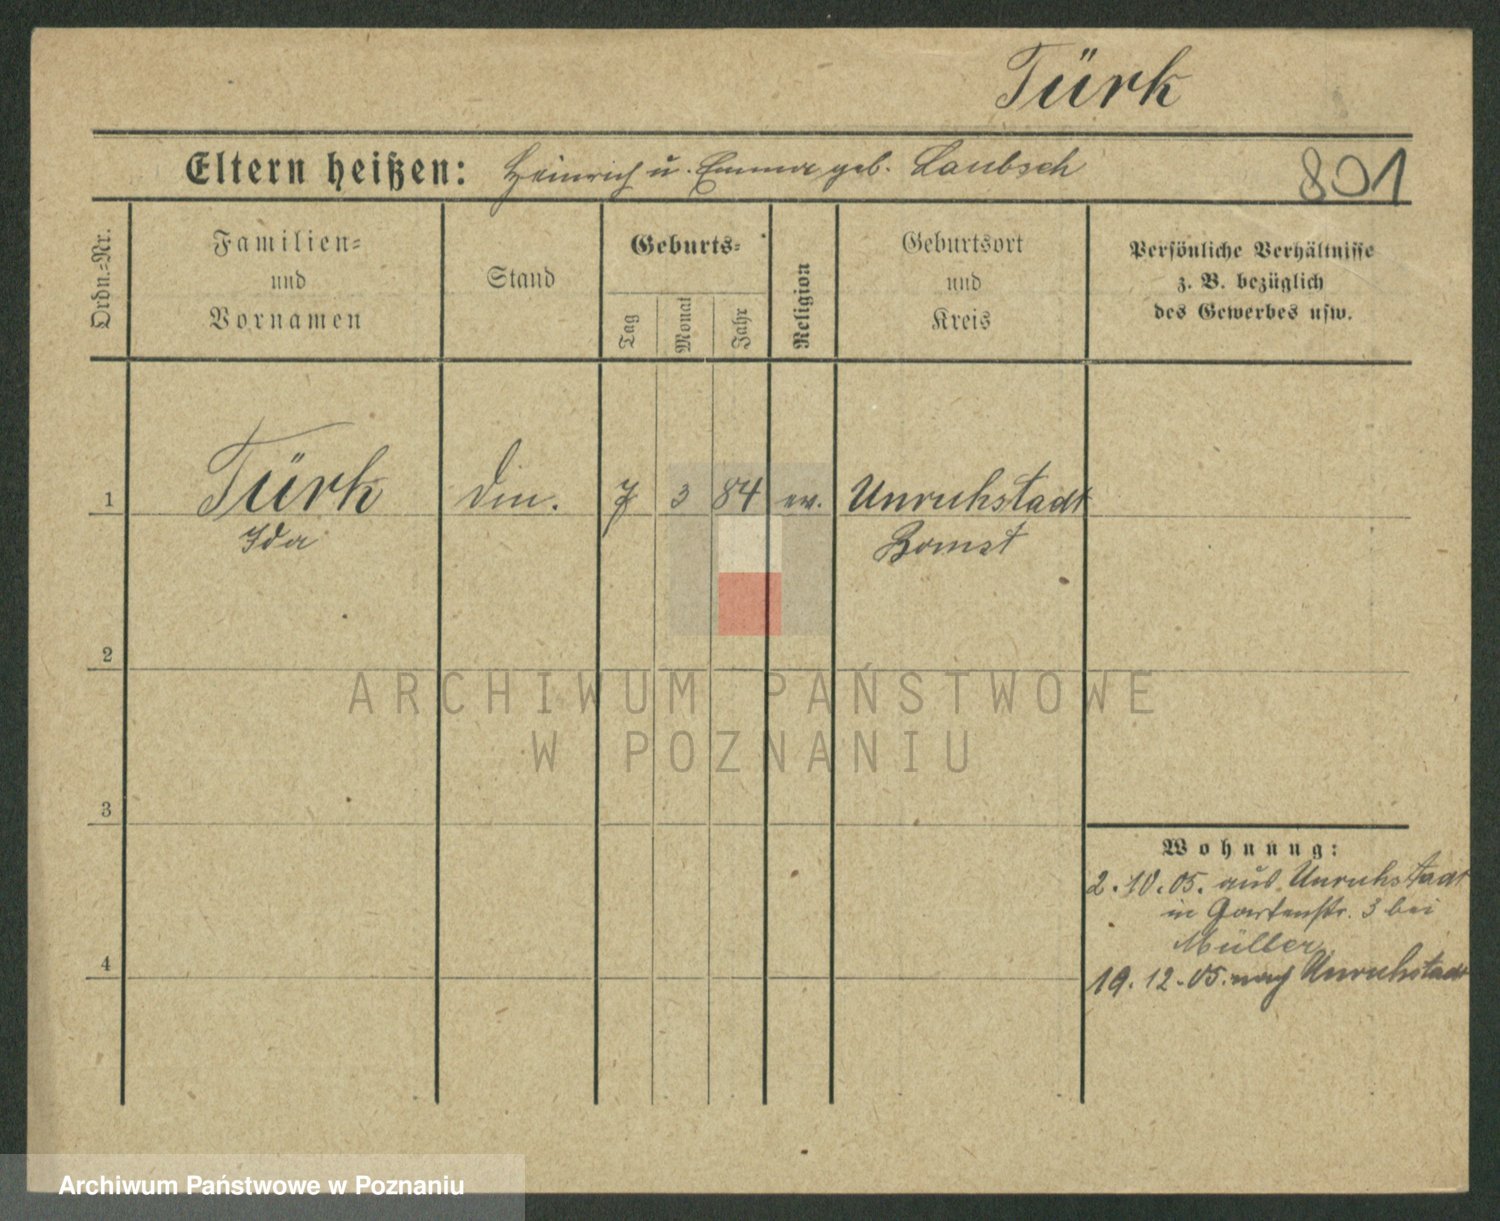 Türk
Eltern heißen: Heinrich u. Emma geb. Laubsch
801
Ordn.-Nr.
Familien-
und
Vornamen
Stand
Geburts-
Tag
Monat
Jahr
Religion
Geburtsort
und
Kreis
Persönliche Verhältnisse
z. B. bezüglich
des Gewerbes usw.
1 Türk Din. 7 3 84 ev. Unruhstadt
Ida Bomst
2
ARCHIWUM PAŃSTWOWE
W POZNANIU
3
Wohnung:
2.10.05. aus Unruhstadt
in Gartenstr. 3 bei
Müller
4
19.12.05. nach Unruhstadt
Archiwum Państwowe w Poznaniu